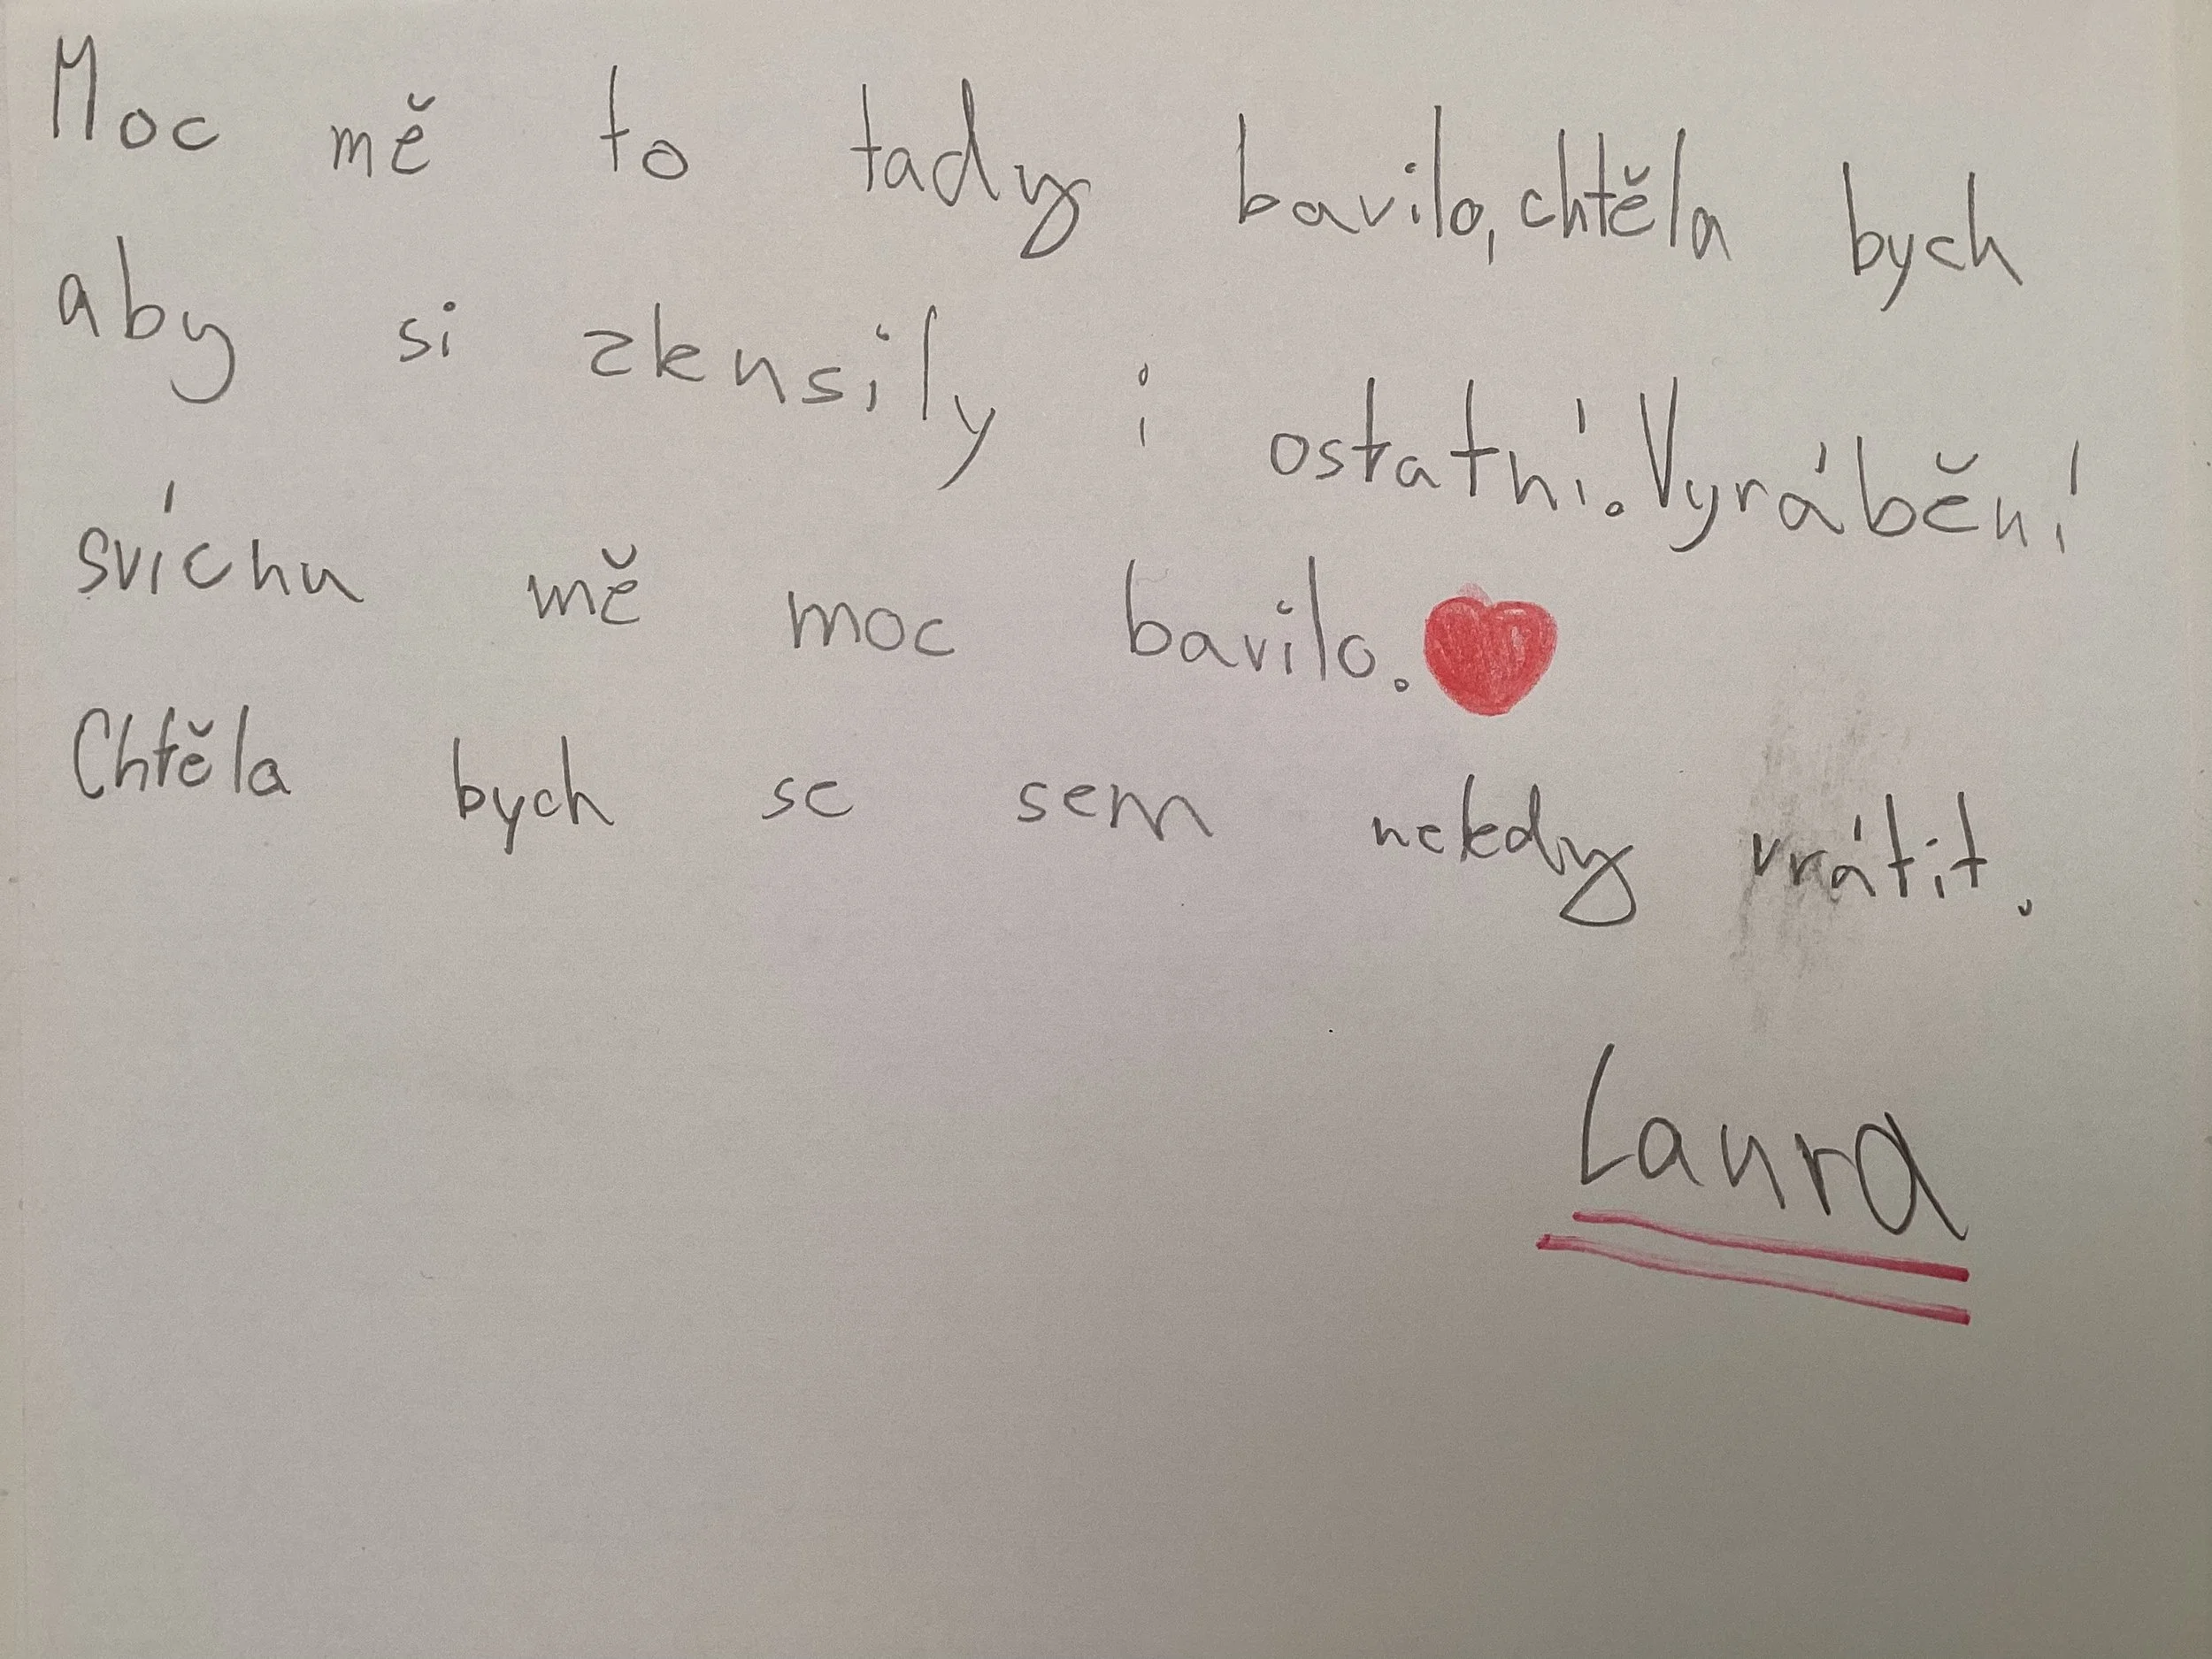 Moc mě to tady bavilo, chtěla bych
aby si zkusily i ostatní. Vyrábění
svíchu mě moc bavilo.
Chtěla bych se sem nekdy vrátit.
Laura